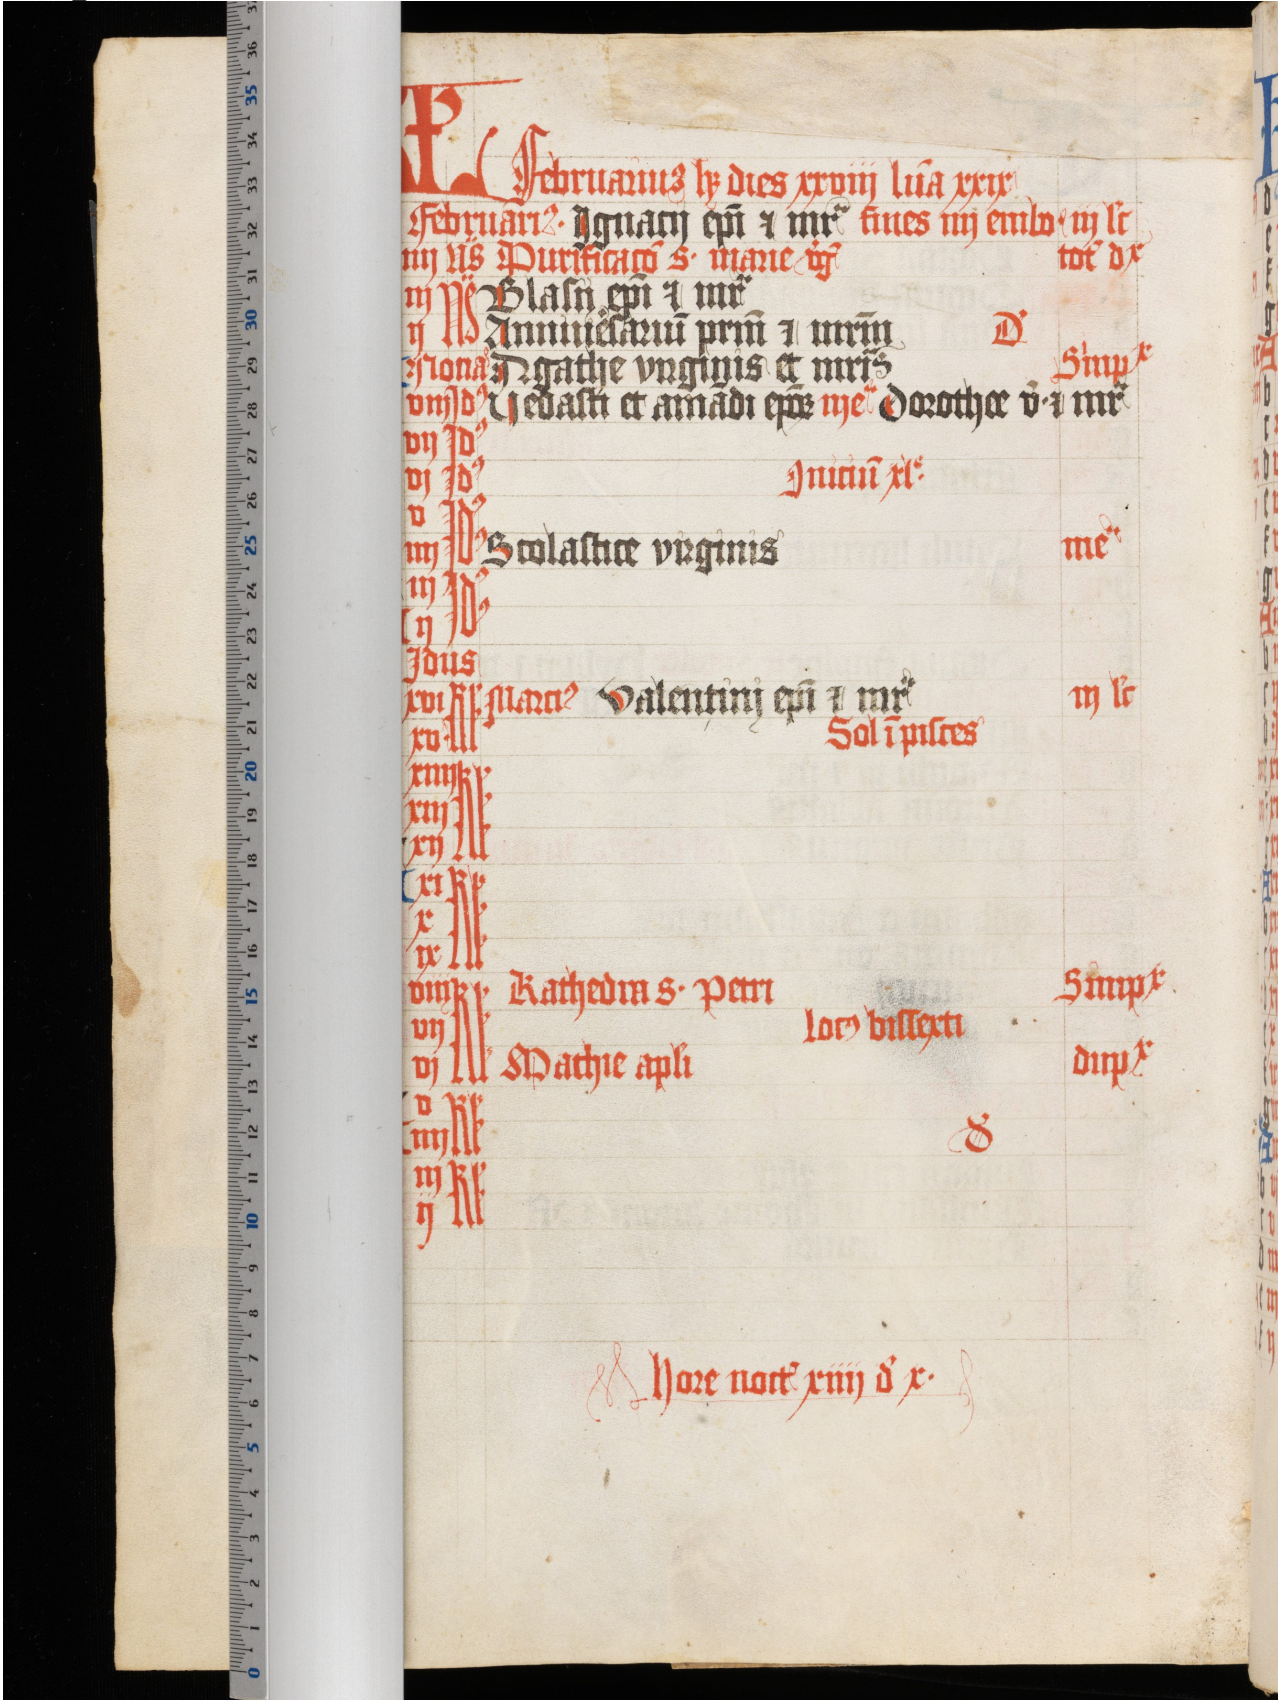 KL
Februarius hꝫ dies xxviii lūa xxix
Februari⁹. Ignacij ep̄i ⁊ mr̄ fines iiij embo. iij lc̄
iiij Nōs Purificacō s. marie v̄g tot dx
iij Nō Blasij ep̄i ⁊ mr̄
ij No Anniu̾sariū prm̄ ⁊ mrm̄ D
Nonas Agathe virginis et mrīs Simpx
viij Id⁹ Vedasti et amādi ep̄oꝝ me Dorothee v̄. ⁊ mr̄
vij Id⁹
vj Id⁹ Iniciū xle.
v Id⁹
iiij Id⁹ Scolastice virginis me
iij Id⁹
ij Id⁹
Idus
xvi kl. Marci⁹ Valentinij ep̄i ⁊ mr̄ iij lc̄
xv kl Sol ī pisces
xiiij kl
xiij kl
xij kl
xi kl
x kl
ix kl
viij kl Kathedra s. Petri Simpx
vij kl loc⁹ bissexti
vj kl Mathie apl̄i dupx
v kl
iiij kl d
iij kl
ij kl
Hore noct̄ xiiij d̄ x.